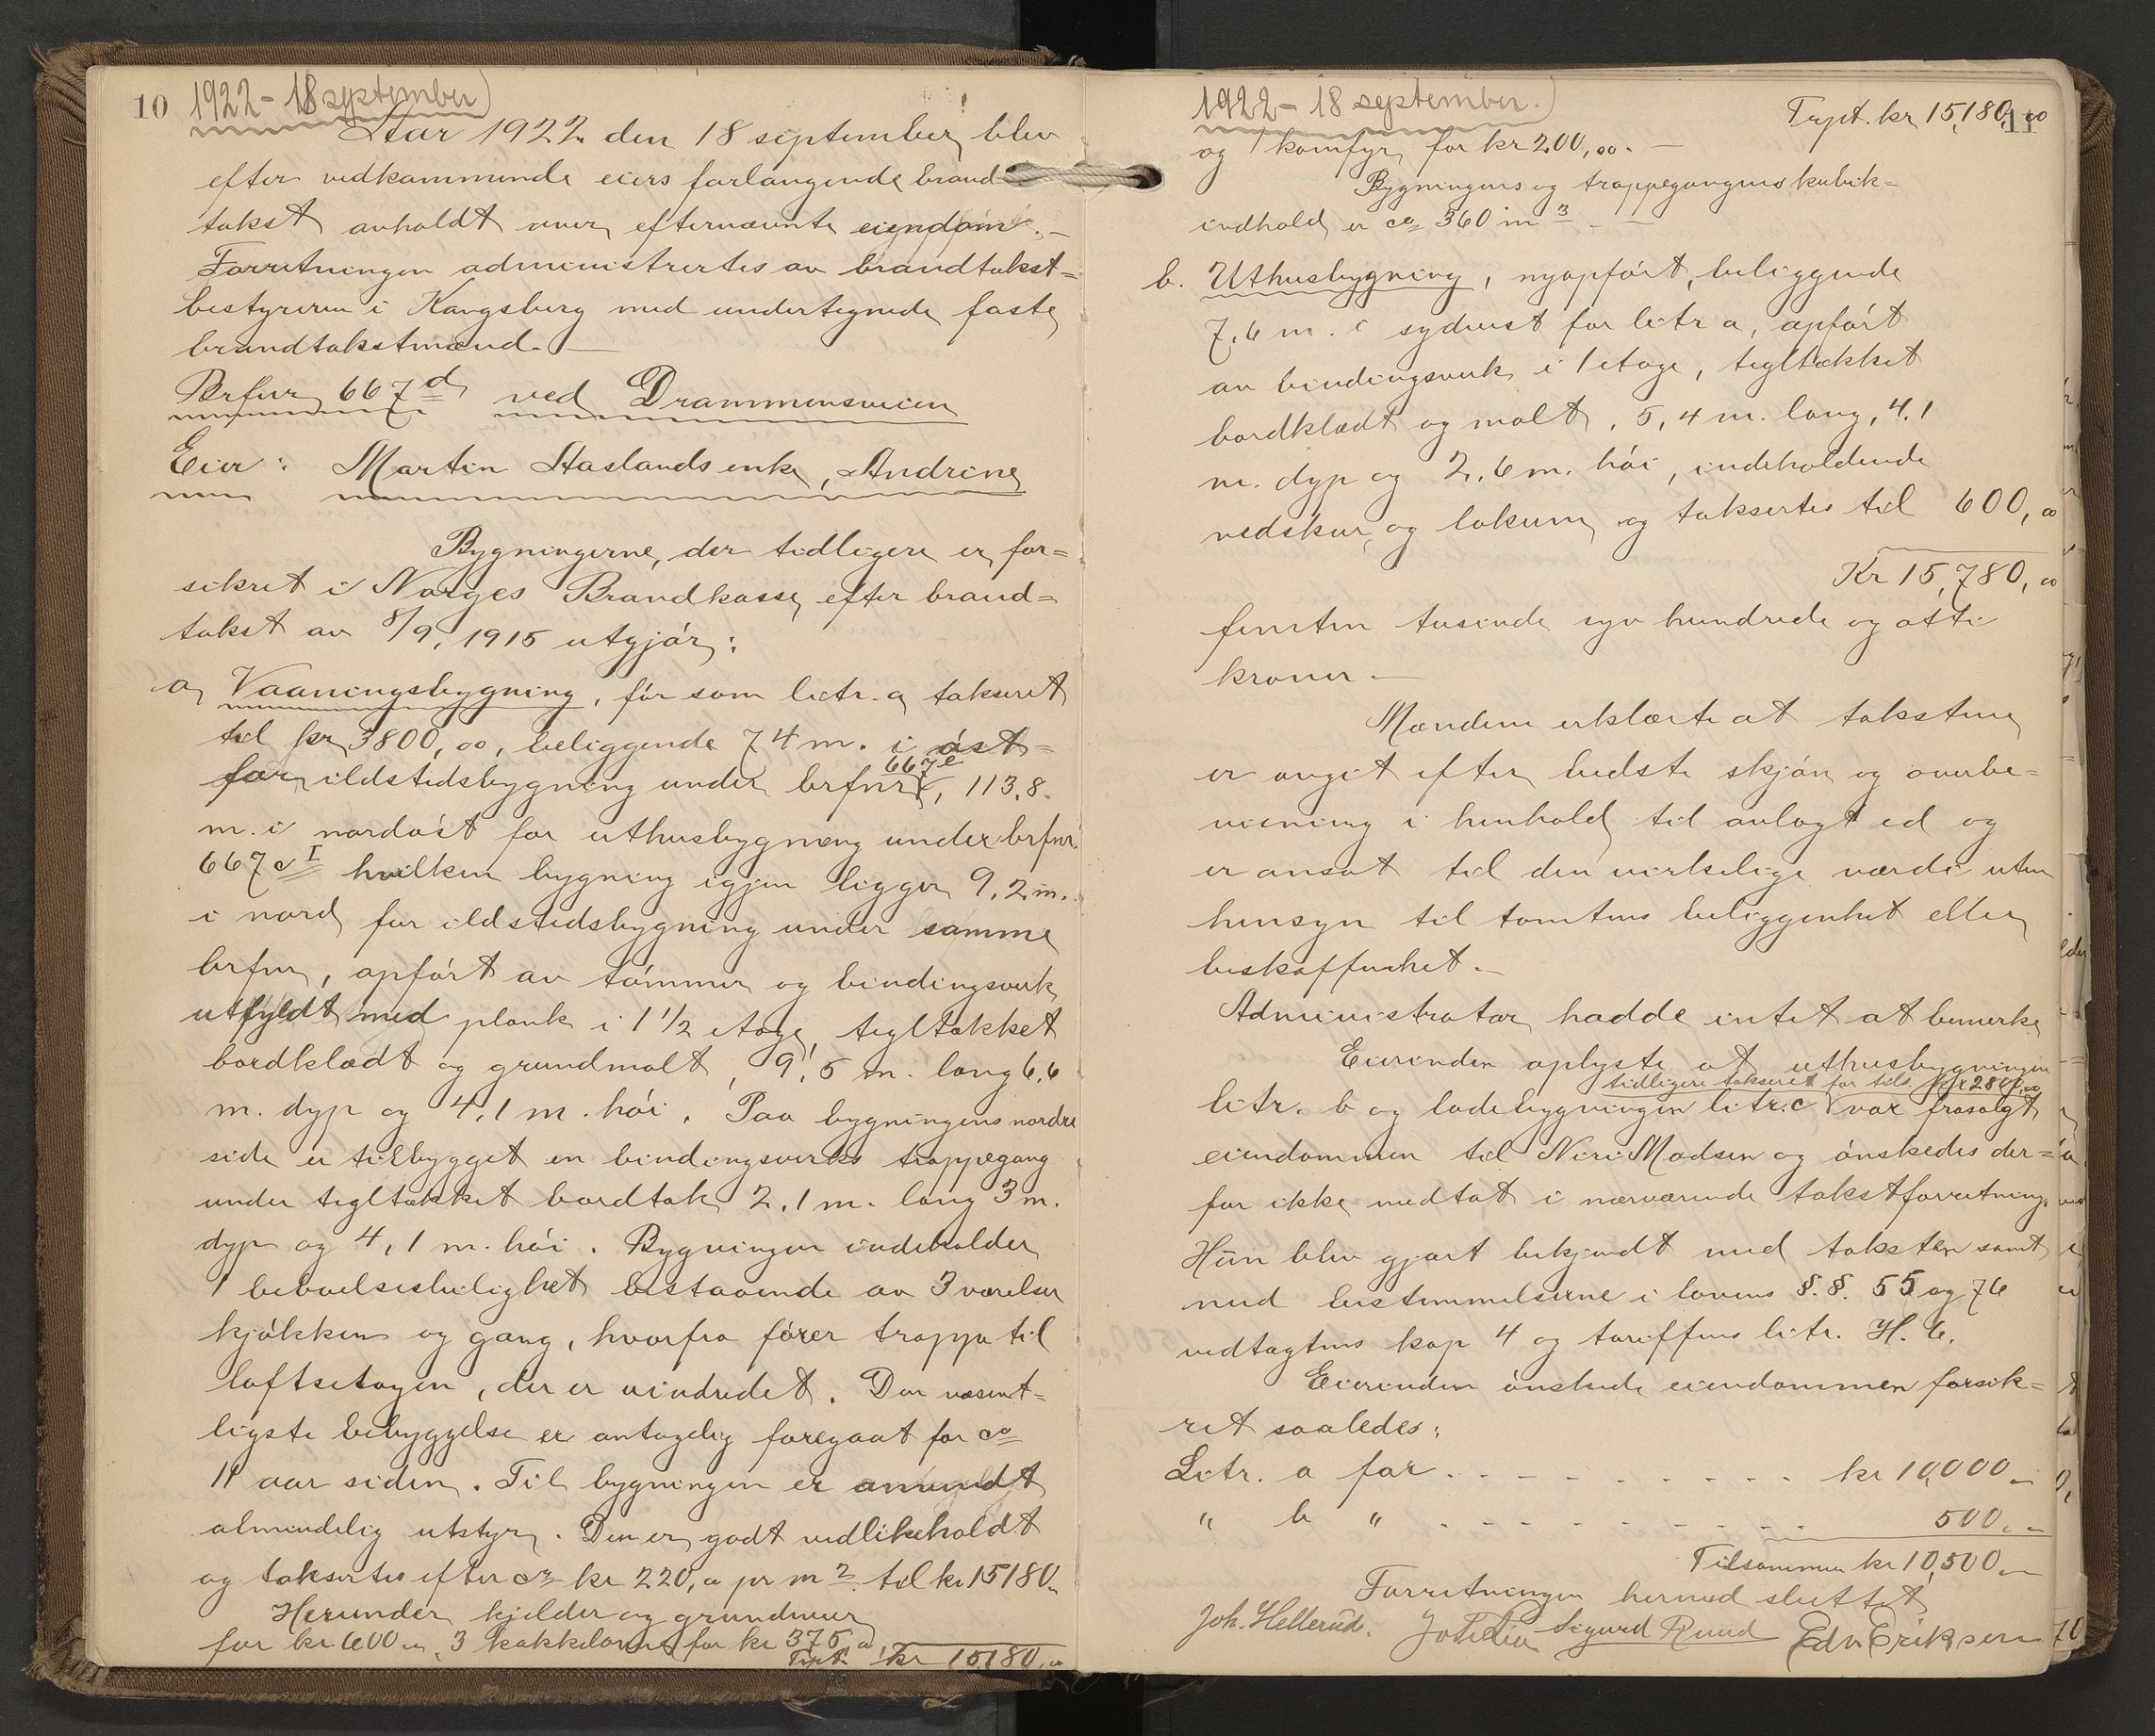 10 1922 - 18 september)
Aar 1922 den 18 september blev
efter vedkommende eiers forlangende brand-
takst avholdt over efternævnte eiendom. –
Forretningen administrertes av brandtakst=
bestyreren i Kongsberg med undertegnede faste
brandtakstmænd. –
Brfnr 667d ved Drammensveien
Eier: Martin Aaslands enke, Andrine
Bygningerne, der tidligere er for=
sikret i Norges Brandkasse efter brand=
takst av 8/9. 1915 utgjør:
a, Vaaningsbygning, før som litr. a taksert
til kr 3800,00, beliggende 74 m. i øst=
for ildstedsbygning under brfnr 667e, 113,8
m. i nordøst for uthusbygning under brfnr.
667cI hvilken bygning igjen ligger 9,2 m.
i nord for ildstedsbygning under samme
brfnr, opført av tømmer og bindingsverk
utfyldt med plank i 1 1/2 etage, tegltækket
bordklædt og grundmalt, 9,5 m. lang 6,6
m. dyp og 4,1 m. høi. Paa bygningens nordre
side er tilbygget en bindingsverks trappegang
under tegltækket bordtak 2,1 m. lang 3 m.
dyp og 4,1 m. høi. Bygningen indeholder
1 beboelsesleilighet bestaaende av 3 værelser
kjøkken og gang, hvorfra fører trappe til
loftsetagen, der er uindredet. Den væsent=
ligste bebyggelse er antagelig foregaat for ca
11 aar siden. Til bygningen er anvendt
almindelig utstyr. Den er godt vedlikeholdt
og taksertes efter ca kr 220,00 pr m2 til kr 15180,00
Herunder kjelder og grundmur
for kr 600,00, 3 kakkelovne for kr 375,00
Trpt. kr 15,180,00
1922 - 18 september.)
Trpt. kr 15,180,00 11
og 1 komfyr for kr 200,00. –
Bygningens og trappegangens kubik=
indhold er ca 360 m3 –
b. Uthusbygning, nyopført, beliggende
7,6 m. i sydvest for litr a, opført
av bindingsverk i 1 etage, tegltækket
bordklædt og malt, 5,4 m. lang, 4,1
m. dyp og 2,6 m. høi, indeholdende
vedskur og lokum og taksertes til 600,00
Kr 15,780,00
femten tusinde syv hundrede og otti
kroner. –
Mændene erklærte at taksten
er avgit efter bedste skjøn og overbe=
visning i henhold til avlagt ed og
er ansat til den virkelige værdi uten
hensyn til tomtens beliggenhet eller
beskaffenhet. –
Administrator hadde intet at bemerke
Eierinden oplyste at uthusbygningen
tidligere taksert for tils. kr 2800,00
litr. b og ladebygningen litr. c var frasolgt
eiendommen til Madsen og ønskedes der=
for ikke medtat i nærværende takstforretning.
Hun blev gjort bekjendt med taksten samt
med bestemmelserne i lovens §.§. 55 og 76
vedtægtens kap 4 og tariffens litr. H. 6.
Eierinden ønskede eiendommen forsik=
ret saaledes:
Litr. a for . . . . . . . . . . kr 10,000 –
" b " . . . . . . . . . . . 500. –
Tilsammen kr 10,500 –
Forretningen hermed sluttet
Joh. Hellerud. Sigurd Ruud Edv. Eriksen